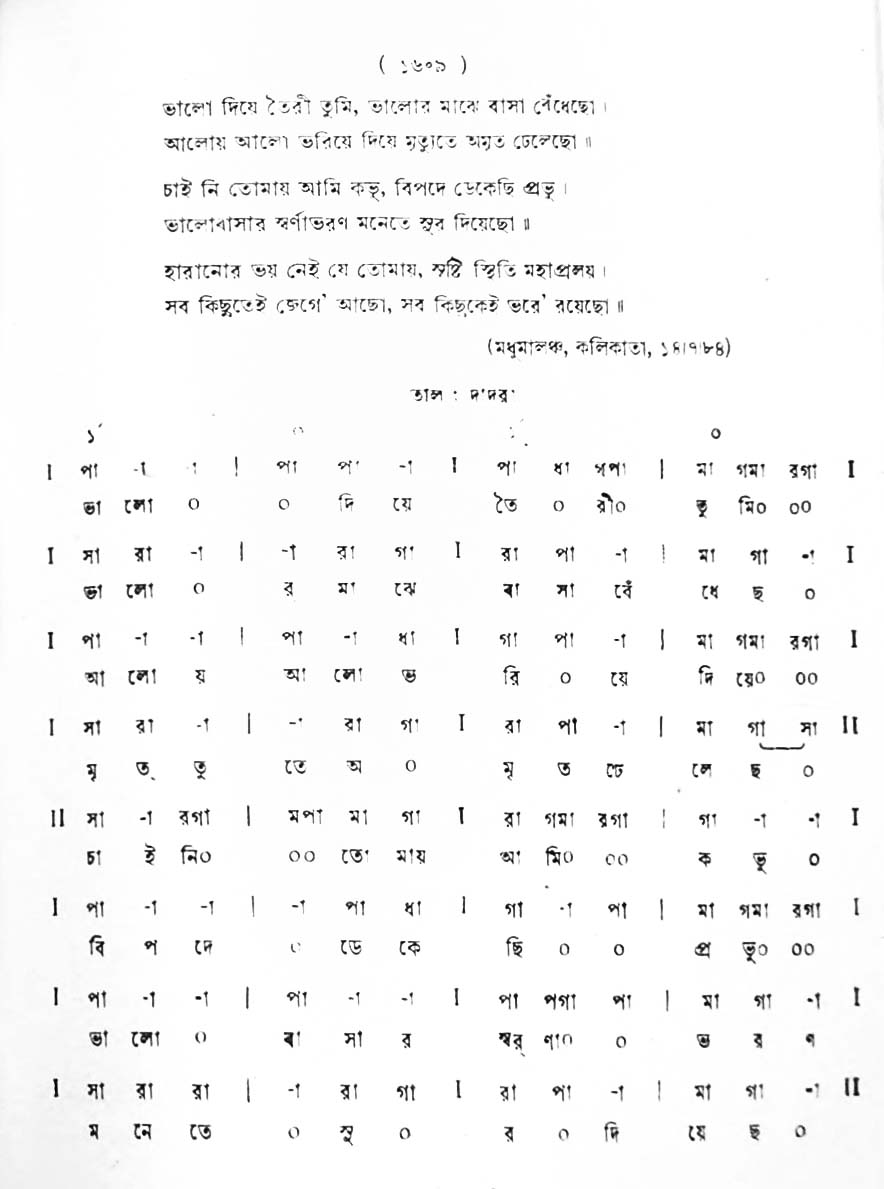 ( ১৬০৯ )
ভালো দিয়ে তৈরী তুমি, ভালোর মাঝে বাসা বেঁধেছো ।
আলোয় আলো ভরিয়ে দিয়ে মৃত্যুতে অমৃত ঢেলেছো ॥
চাই নি তোমায় আমি কভু, বিপদে ডেকেছি প্রভু ।
ভালোবাসার স্বর্ণাভরণ মনেতে সুর দিয়েছো ॥
হারানোর ভয় নেই যে তোমায়, সৃষ্টি স্থিতি মহাপ্রলয় ।
সব কিছুতেই জেগে' আছো, সব কিছুকেই ভরে' রয়েছো ॥
(মধুমালঞ্চ, কলিকাতা, ১৪।৭।৮৪)
তাল : দাদরা
১´ ০ ১´ ০
I পা -া -া | পা পা -া I পা ধা ধপা | মা গমা রগা I
ভা লো ০ ০ দি য়ে তৈ ০ রী০ তু মি০ ০০
I সা রা -া | -া রা গা I রা পা -া | মা গা -া I
ভা লো ০ র্ মা ঝে বা সা বেঁ ধে ছ ০
I পা -া -া | পা -া ধা I গা পা -া | মা গমা রগা I
আ লো য় আ লো ভ রি ০ য়ে দি য়ে০ ০০
I সা রা -া | -া রা গা I রা পা -া | মা গা সা II
মৃ ত্ তু তে অ ০ মৃ ত ঢে লে ছ ০
II সা -া রগা | মপা মা গা I রা গমা রগা | গা -া -া I
চা ই নি০ ০০ তো মায় আ মি০ ০০ ক ভু ০
I পা -া -া | -া পা ধা I গা -া পা | মা গমা রগা I
বি প দে ০ ডে কে ছি ০ ০ প্র ভু০ ০০
I পা -া -া | পা -া -া I পা পগা পা | মা গা -া I
ভা লো ০ বা সা র স্বর্ ণা০ ০ ভ র ণ
I সা রা রা | -া রা গা I রা পা -া | মা গা -া II
ম নে তে ০ সু ০ র ০ দি য়ে ছ ০